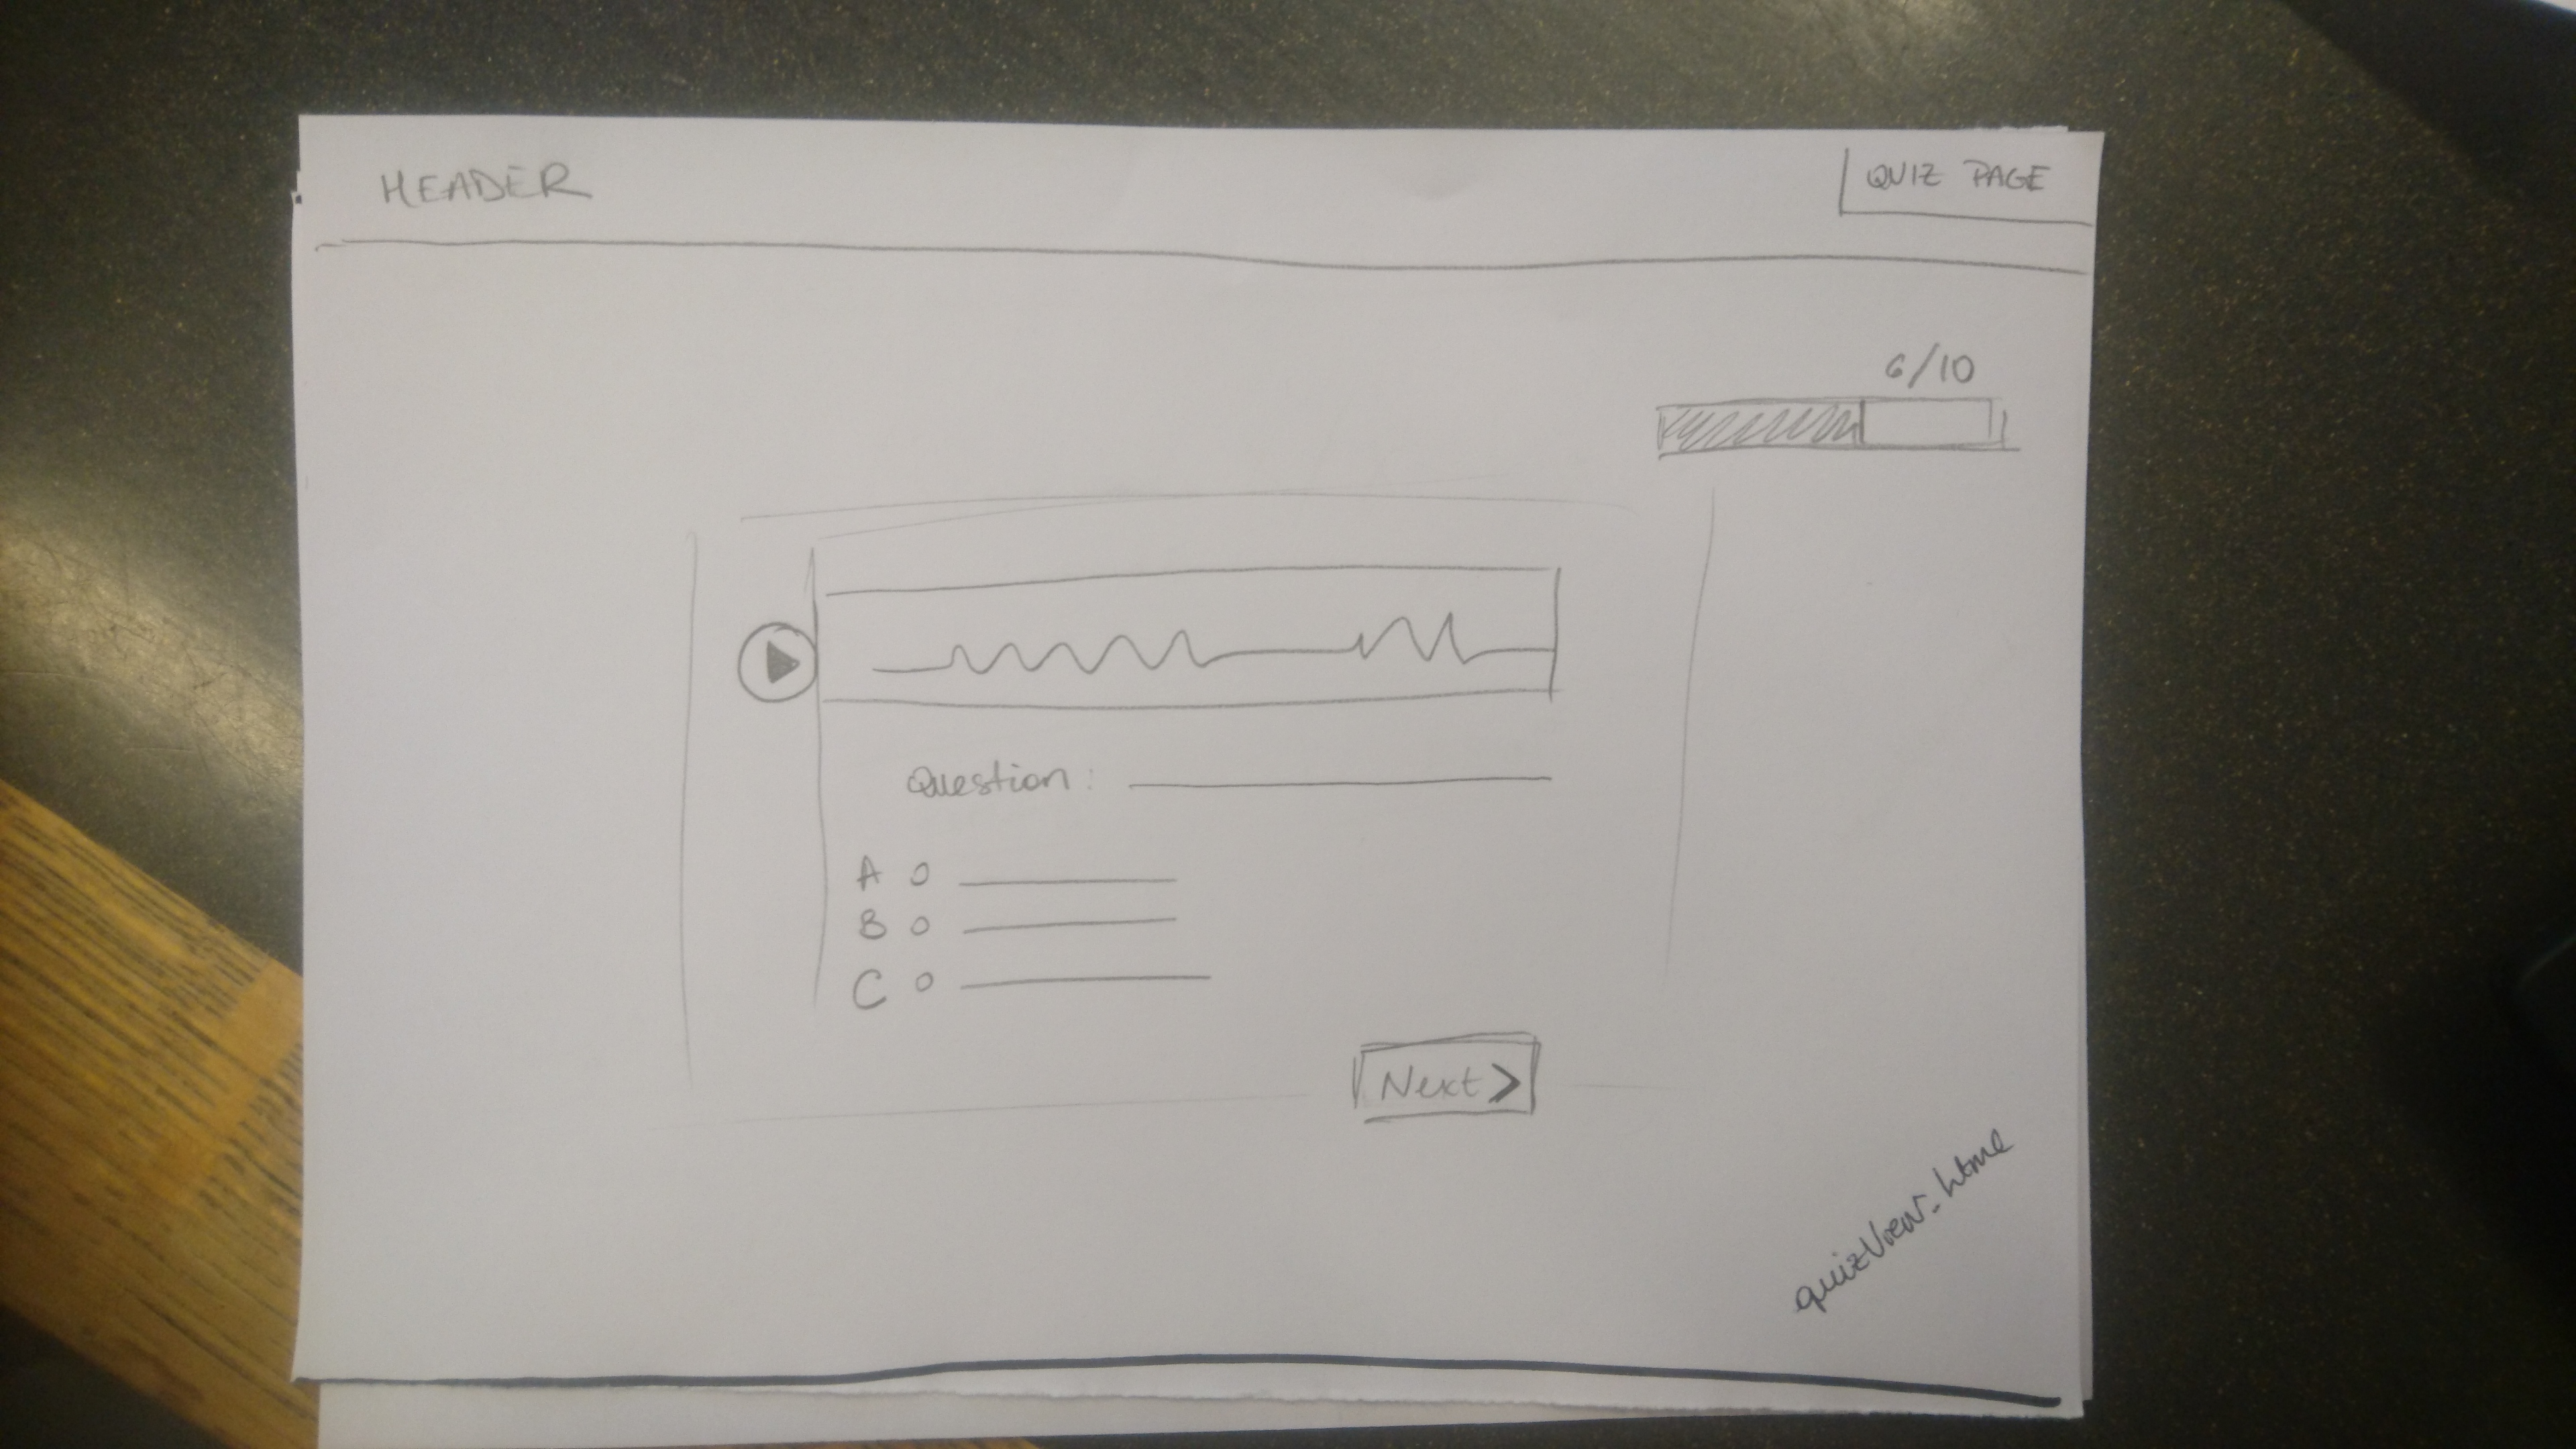 HEADER
QUIZ PAGE
6/10
Question:
A
B
C
Next >
quizView.html